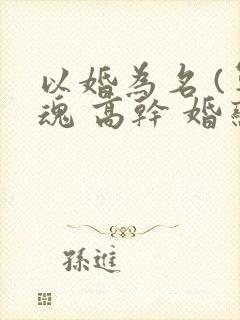 以婚為名(
魂 高幹 婚
孫進